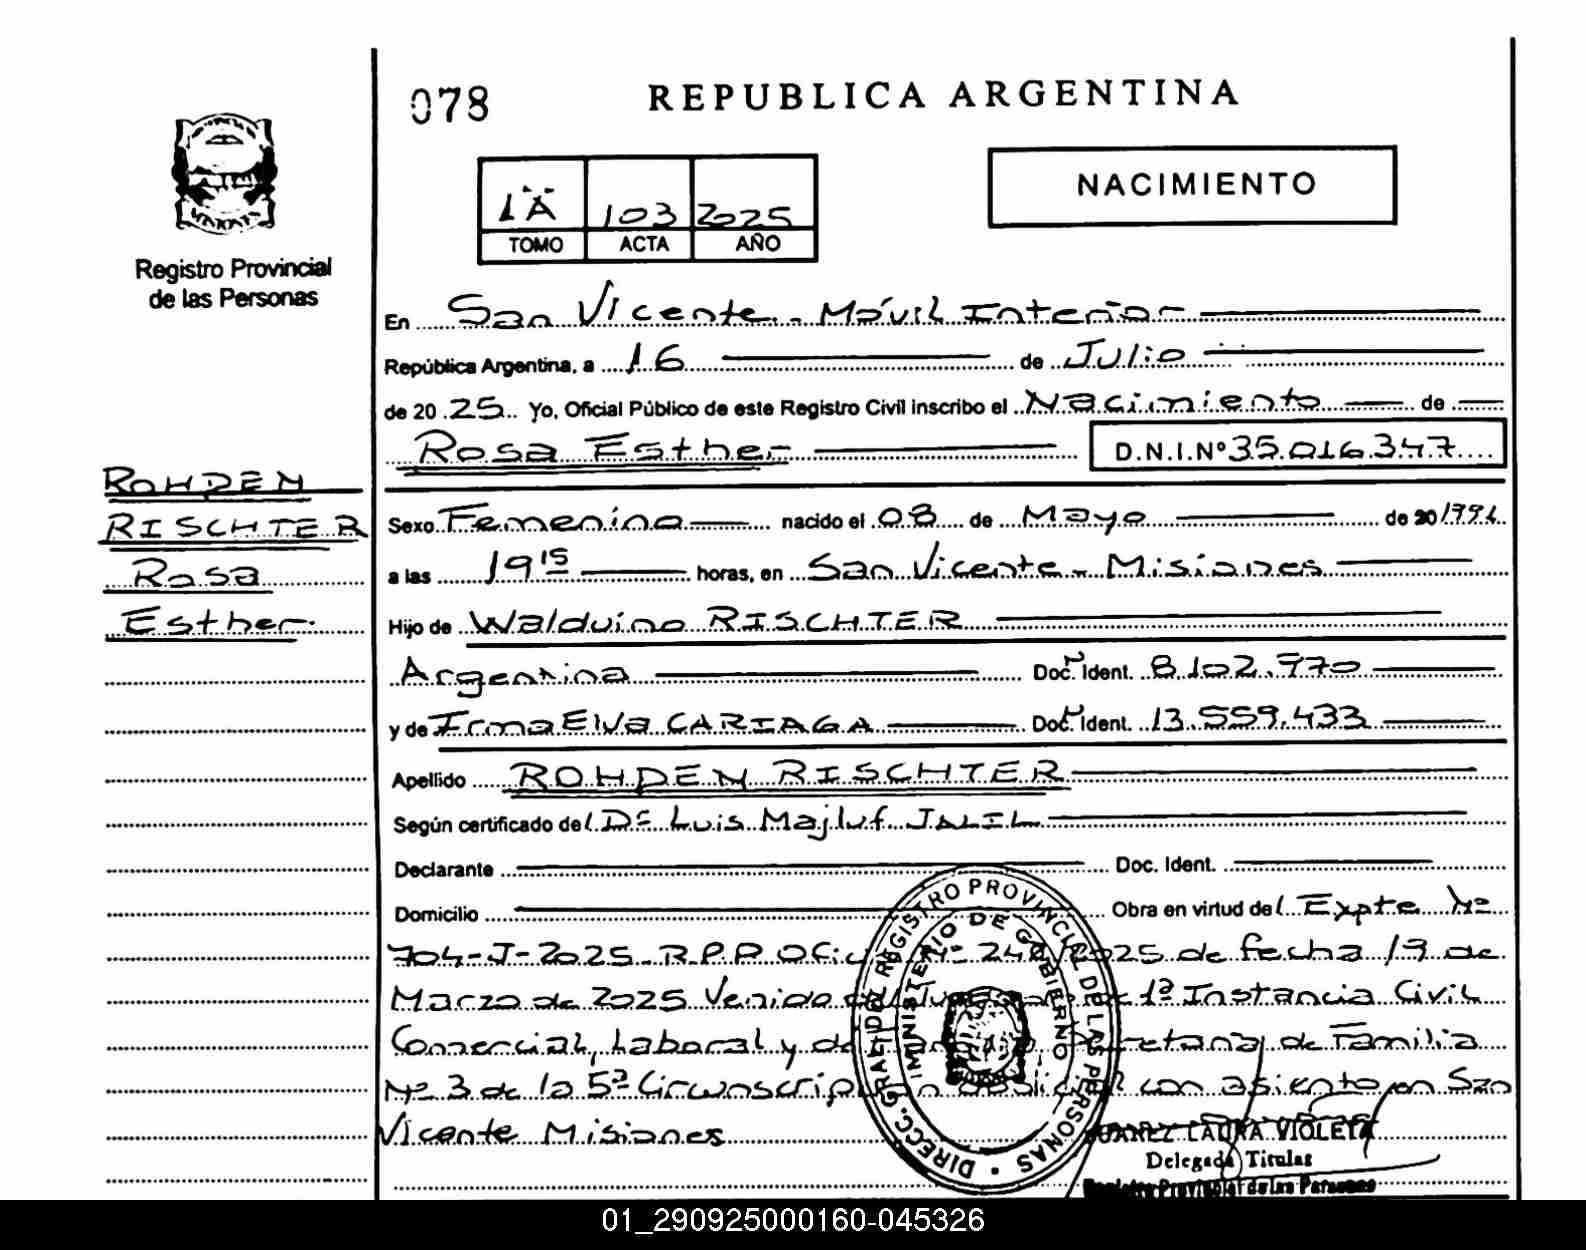 078
REPUBLICA ARGENTINA
NACIMIENTO
1A 103 2025
TOMO ACTA AÑO
Registro Provincial
de las Personas
En San Vicente - Móvil Interior
República Argentina, a 16 de Julio
de 20 25 Yo, Oficial Público de este Registro Civil inscribo el Nacimiento de
Rosa Esther D.N.I.Nº 35.016.347
ROHDEN
RISCHTER
Rosa
Esther.
Sexo Femenino nacido el 08 de Mayo de
a las 19 15 horas, en San Vicente - Misiones
Hijo de Walduino RISCHTER
Argentina Doc. Ident. 8.102.970
y de Irma Elva CARIAGA Doc. Ident. 13.559.433
Apellido ROHDEN RISCHTER
Según certificado del Dr Luis Majluf JALIL
Declarante Doc. Ident.
Domicilio Obra en virtud del Expte Nº
704-J-2025 R.P.P. Nº 2025 de fecha 19 de
Marzo de 2025 Venido del de 1ª Instancia Civil
Comercial, Laboral y de Secretaria de Familia
Nº 3 de la 5ª Circunscripción Judicial con asiento en San
Vicente Misiones
DIRECC. GRAL. DEL REGISTRO PROVINCIAL DE LAS PERSONAS
MINISTERIO DE GOBIERNO
LAURA VIOLETA
Delegada Titular
Registro Provincial de las Personas
01_290925000160-045326